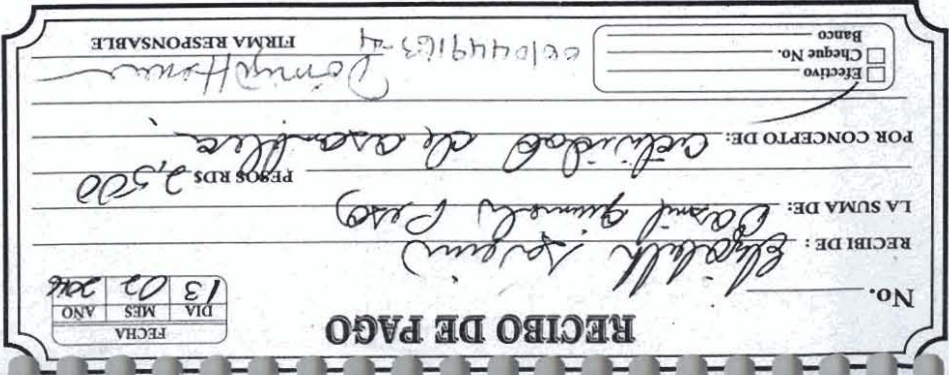 RECIBO DE PAGO
FECHA
DIA MES AÑO
13 02 2016
No.
RECIBI DE: Elizabeth
LA SUMA DE: Dosmil quinientos Pesos
PESOS RD$ 2,500
POR CONCEPTO DE: actividad de asamblea
Efectivo
Cheque No.
Banco
FIRMA RESPONSABLE